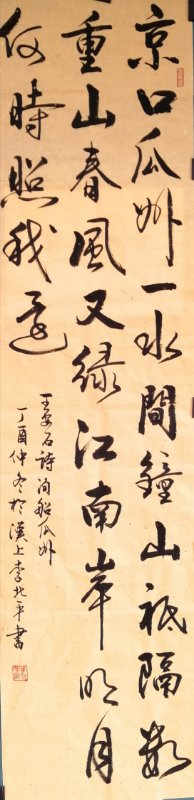 京口瓜州一水間鐘山祇隔數
重山春風又綠江南岸明月
何時照我還
王安石詩泊船瓜州
丁酉仲冬於漢上李北平書